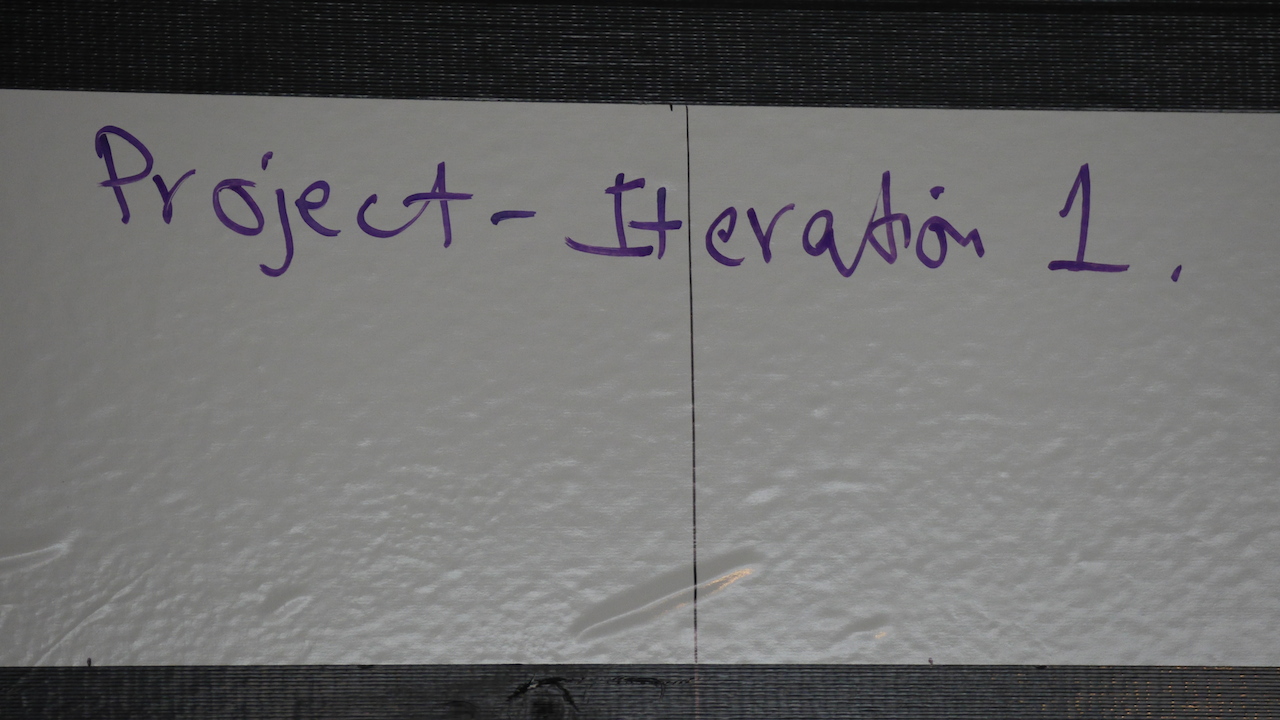 Project - Iteration 1.